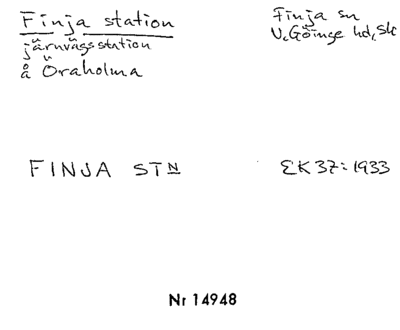 Finja station
järnvägsstation
å Öraholma
Finja sn
V. Göinge hd, Sk
FINJA STN
EK 37: 1933
Nr 14948